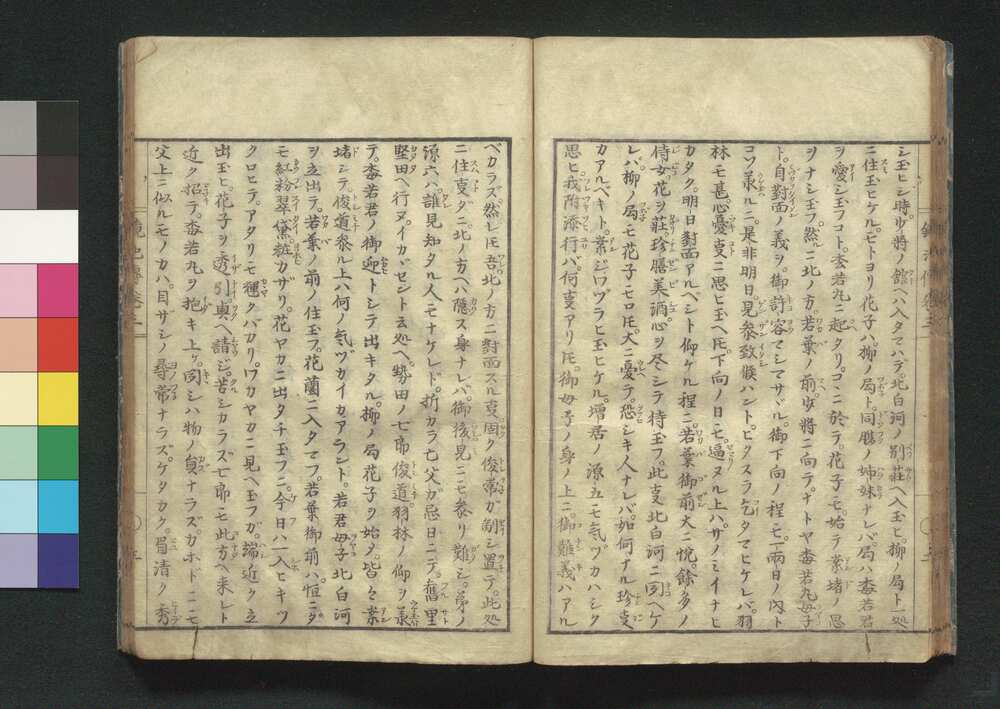 シ玉ヒシ時少将ノ館ヘハ入タマハデ北白河ノ別荘ヘ入玉ヒ柳ノ局ト一処
ニ住玉ヒケルモトヨリ花子ハ柳ノ局ト同腹ノ姉妹ナレバ局ハ杢若君
ヲ愛シ玉フコト杢若丸ニ起タリコヽニ於テ花子モ始テ案堵ノ思
ヲナシ玉フ然ルニ北ノ方若葉ノ前少將ニ向テナトヤ杢若丸母子
ト自對面ノ義ヲ御許容マシマサヾル御下向ノ程モ一両日ノ内ト
コソ承ルニ是非明日見参致候ハントヒタスラ乞タマヒケレバ羽
林モ甚心憂叓ニ思ヒ玉ヘ𪜈下向ノ日モ逼ヌル上ハサノミイナヒ
カタク明日對面アルベシト仰ケル程ニ若葉御前大ニ悦餘多ノ
侍女花ヲ莊珍膳美酒心ヲ尽シテ待玉フ此叓北白河ニ聞ヘケ
レバ柳ノ局モ花子モロ𪜈大ニ憂テ恐シキ人ナレバ如何アル珍叓
カアルベキト案ジワヅラヒ玉ヒケル増居ノ源五モ氣ヅカハシク
思ヒ我附添行バ何叓アリ𪜈御母子ノ身ノ上ニ御難義ハアル
ベカラズ然レ𪜈吾北ノ方ニ對面スル叓固ク俊常ガ制シ置テ此処
ニ住叓ダニ北ノ方ヘハ隱ス身ナレバ御後見ニモ参リ難シ弟ノ
源六ハ誰見知タル人モナケレド折カラ亡父ガ忌日ニテ舊里
堅田ヘ行ヌイカガセント云処ヘ勢田ノ七郎俊道羽林ノ仰ヲ承
テ杢若君ノ御迎トシテ出キタル柳ノ局花子ヲ始タ皆々案
堵シテ俊道参ル上ハ何ノ気ヅカイカアラント若君母子北白河
ヲ立出テ若葉ノ前ノ住玉フ花薗ニ入タマフ若葉御前ハ恒ニダ
モ紅粉翠黛粧カザリ花ヤカニ出タチ玉フニ今日ハ一入ヒキツ
クロヒテアタリモ輝クバカリワカヤカニ見ヘ玉フガ端近ク立
出玉ヒ花子ヲ透引奥ヘ請ジ苦シカラズ七郎モ此方ヘ来レト
近ク招テ杢若丸ヲ抱キ上ゲ同シハ物ノ貟ナラズカホドニモ
父上ニ似ルモノカハ目ザシノ尋常ナラズケタカク眉清ク秀